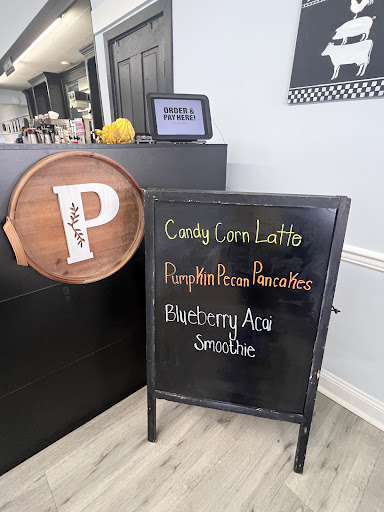 ORDER &
PAY HERE!
P
Candy Corn Latte
Pumpkin Pecan Pancakes
Blueberry Acai
Smoothie